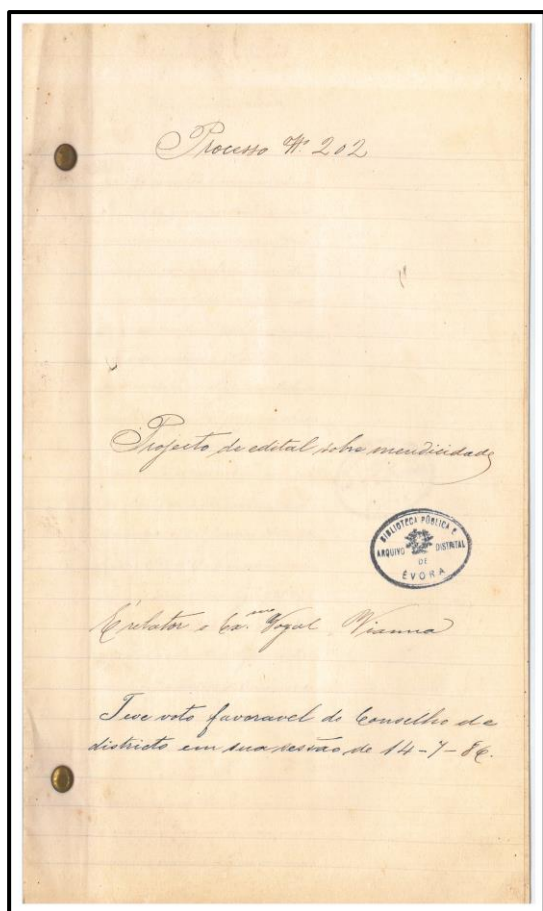 Processo Nº 202
Projecto de edital sobre mendicidade
BIBLIOTECA PÚBLICA E
ARQUIVO DISTRITAL
DE
ÉVORA
É relator o Ex.mo Vogal Vianna
Teve voto favoravel do Conselho de
districto em sua sessão de 14-7-86.